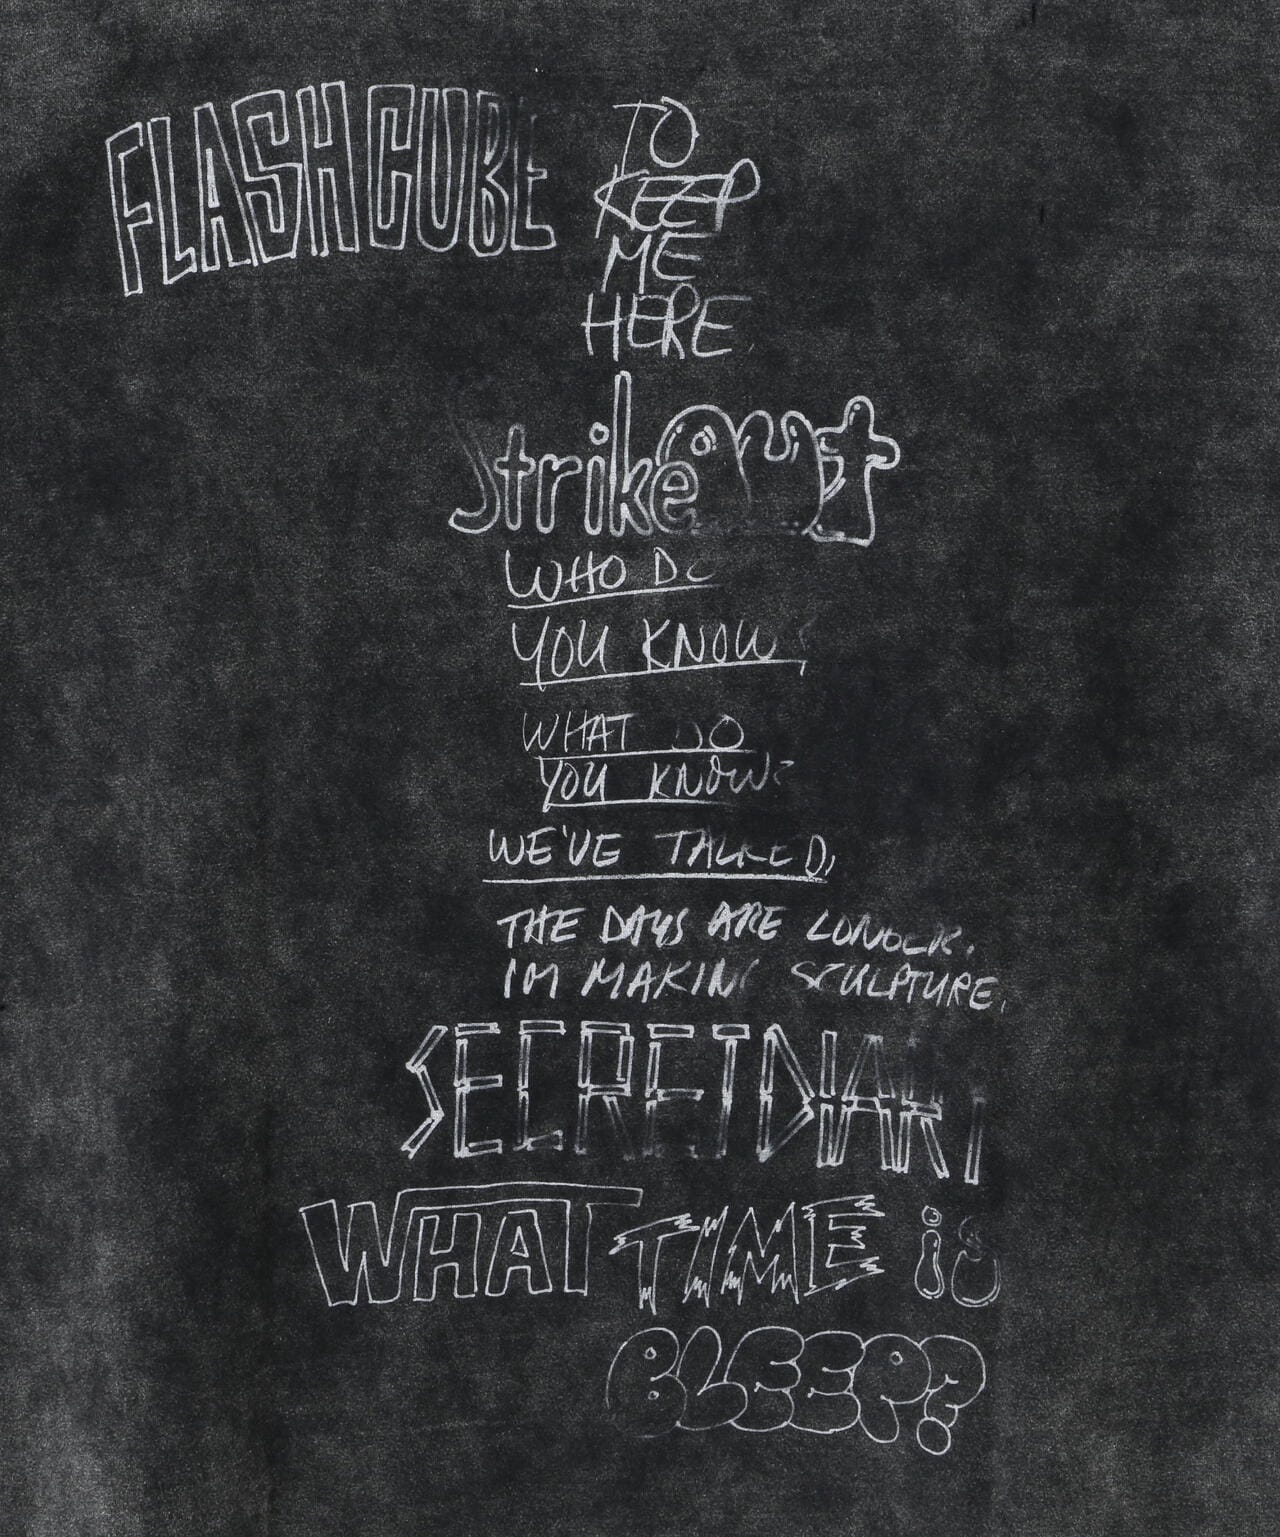 FLASHCUBE
TO
KEEP
ME
HERE.
strikeOut
WHO DO
YOU KNOW?
WHAT DO
YOU KNOW?
WE'VE TALKED,
THE DAYS ARE LONGER.
IM MAKING SCULPTURE.
SECRET DIARY
WHAT TIME is
BLEEP?